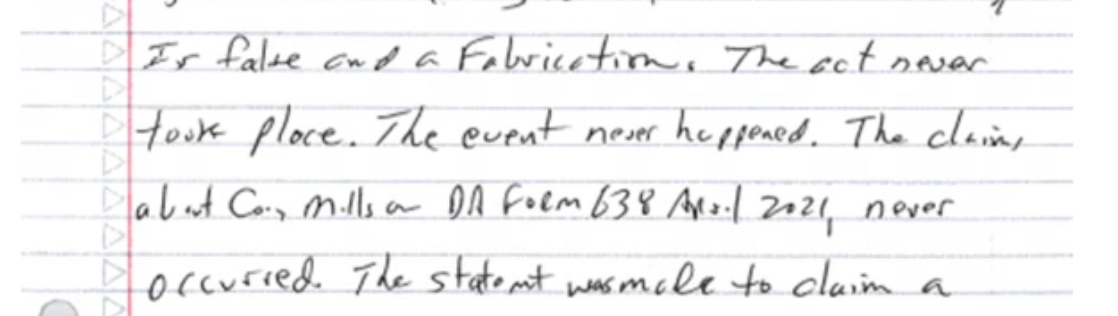 Is false and a Fabrication. The act never
took place. The event never happened. The claim,
about Cory Mills on DA Form 638 April 2021, never
occurred. The statemnt was made to claim a